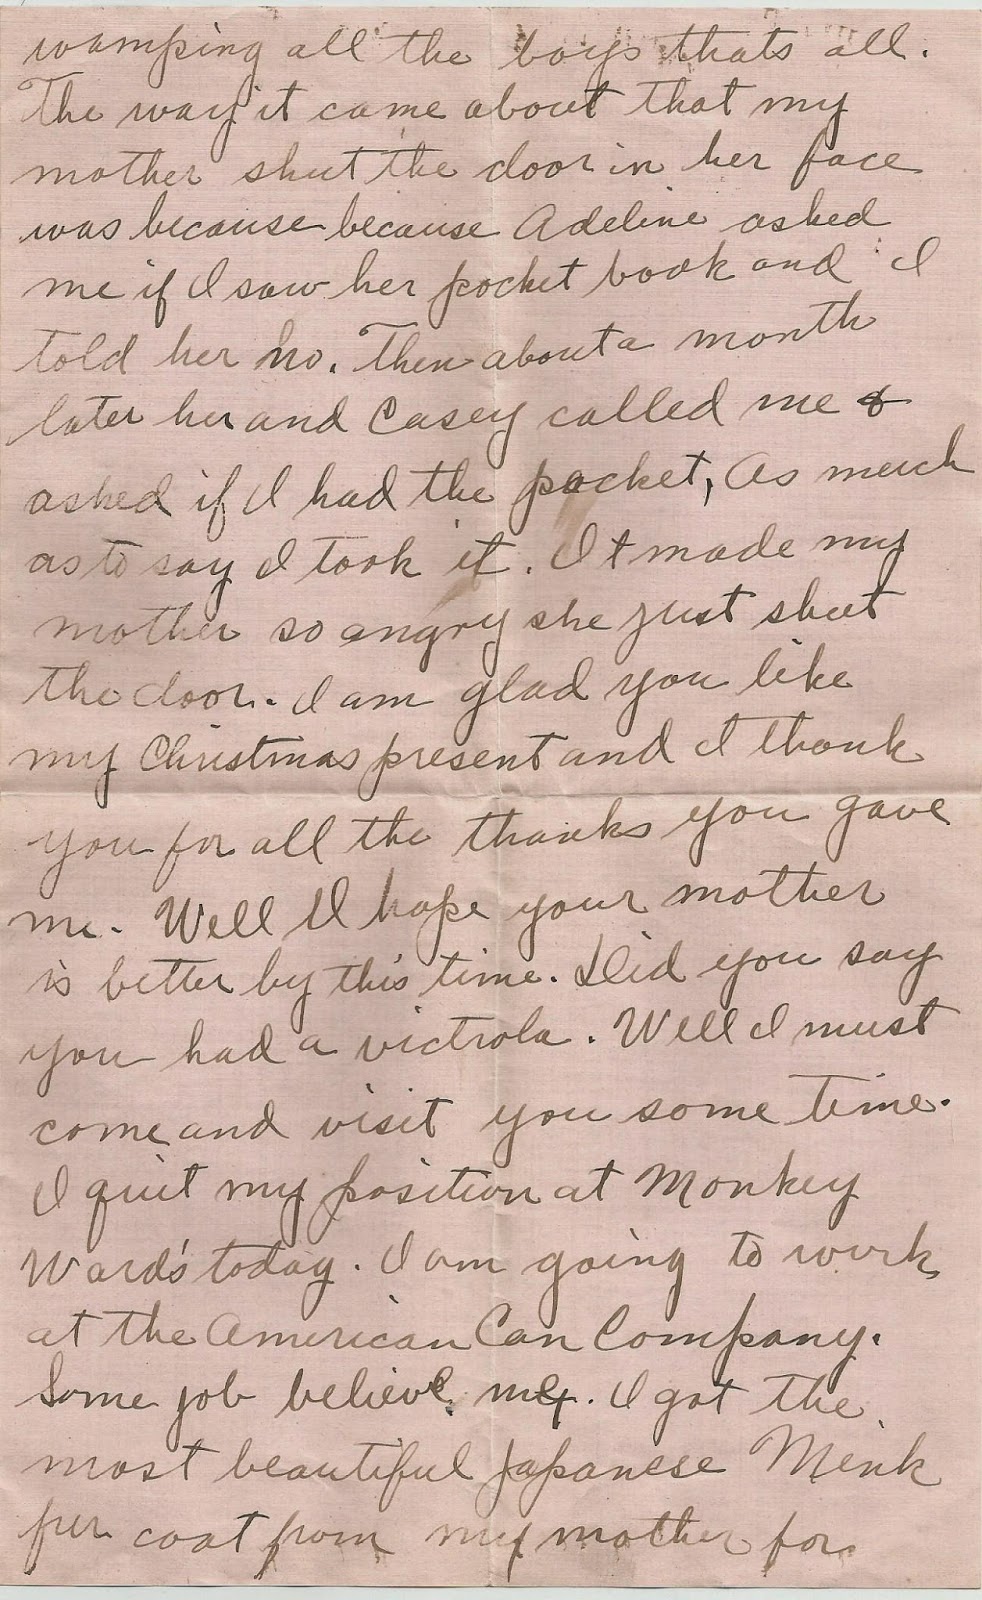 wamping all the boys thats all.
The way it came about that my
mother shut the door in her face
was because because Adeline asked
me if I saw her pocket book and I
told her no. Then about a month
later her and Casey called me &
asked if I had the pocket, As much
as to say I took it. It made my
mother so angry she just shut
the door. I am glad you like
my Christmas present and I thank
you for all the thanks you gave
me. Well I hope your mother
is better by this time. Did you say
you had a victrola. Well I must
come and visit you some time.
I quit my position at Monkey
Ward's today. I am going to work
at the American Can Company.
Some job believe me. I got the
most beautiful Japanese Mink
fur coat from my mother for